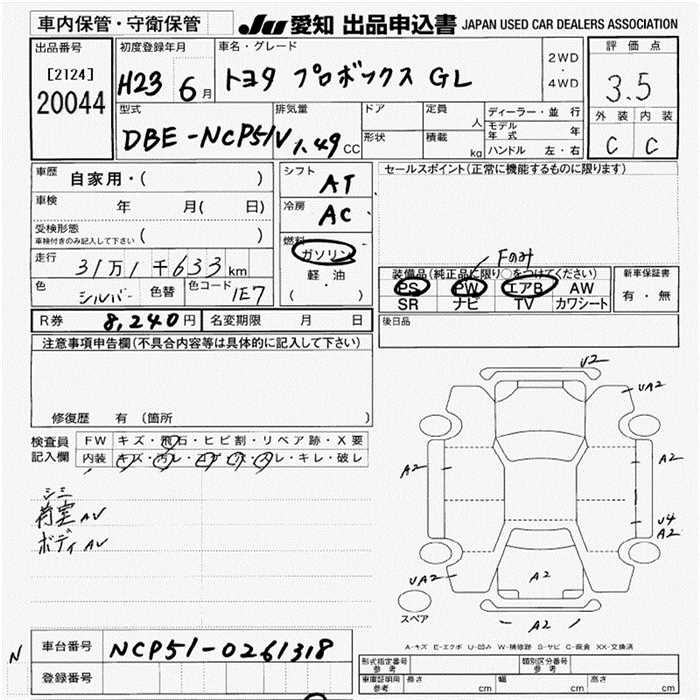 車内保管・守衛保管
JU 愛知 出品申込書 JAPAN USED CAR DEALERS ASSOCIATION
出品番号
[2124]
20044
初度登録年月
H23 6月
車名・グレード
トヨタ プロボックス GL
2WD
・
4WD
評価点
3.5
外装 内装
C C
型式
DBE-NCP51V
排気量
1.49 CC
ドア
形状
定員 人
積載 kg
ディーラー・並行
モデル年式 年
ハンドル 左・右
車歴 自家用・( )
車検 年 月( 日)
受検形態
車検付きのみ記入して下さい ( )
走行 31万1千633km
色 シルバー 色替 色コード 1E7
シフト
AT
冷房
AC
燃料
ガソリン
軽・油
( ・ )
セールスポイント(正常に機能するものに限ります)
Fのみ
装備品(純正品に限り○をつけてください)
PS PW エアB AW
SR ナビ TV カワシート
新車保証書
有・無
後日品
R券 8,240円 名変期限 月 日
注意事項申告欄(不具合内容等は具体的に記入して下さい)
修復歴 有 (箇所
検査員
記入欄
FW キズ・飛石・ヒビ割・リペア跡・X要
内装 キズ・汚レ・コゲ・穴・スレ・キレ・破レ
シミ
荷室 AV
ボディ AV
V2
UA2
A2
A2
U4
A2
UA2
A2
A2
スペア
A-キズ E-エクボ U-凹み W-補修跡 S-サビ C-腐食 XX-交換済
N
車台番号 NCP51-0261318
登録番号
形式指定番号
参考
類別区分番号
参考
車庫証明用
参考
長さ cm 幅 cm 高さ cm